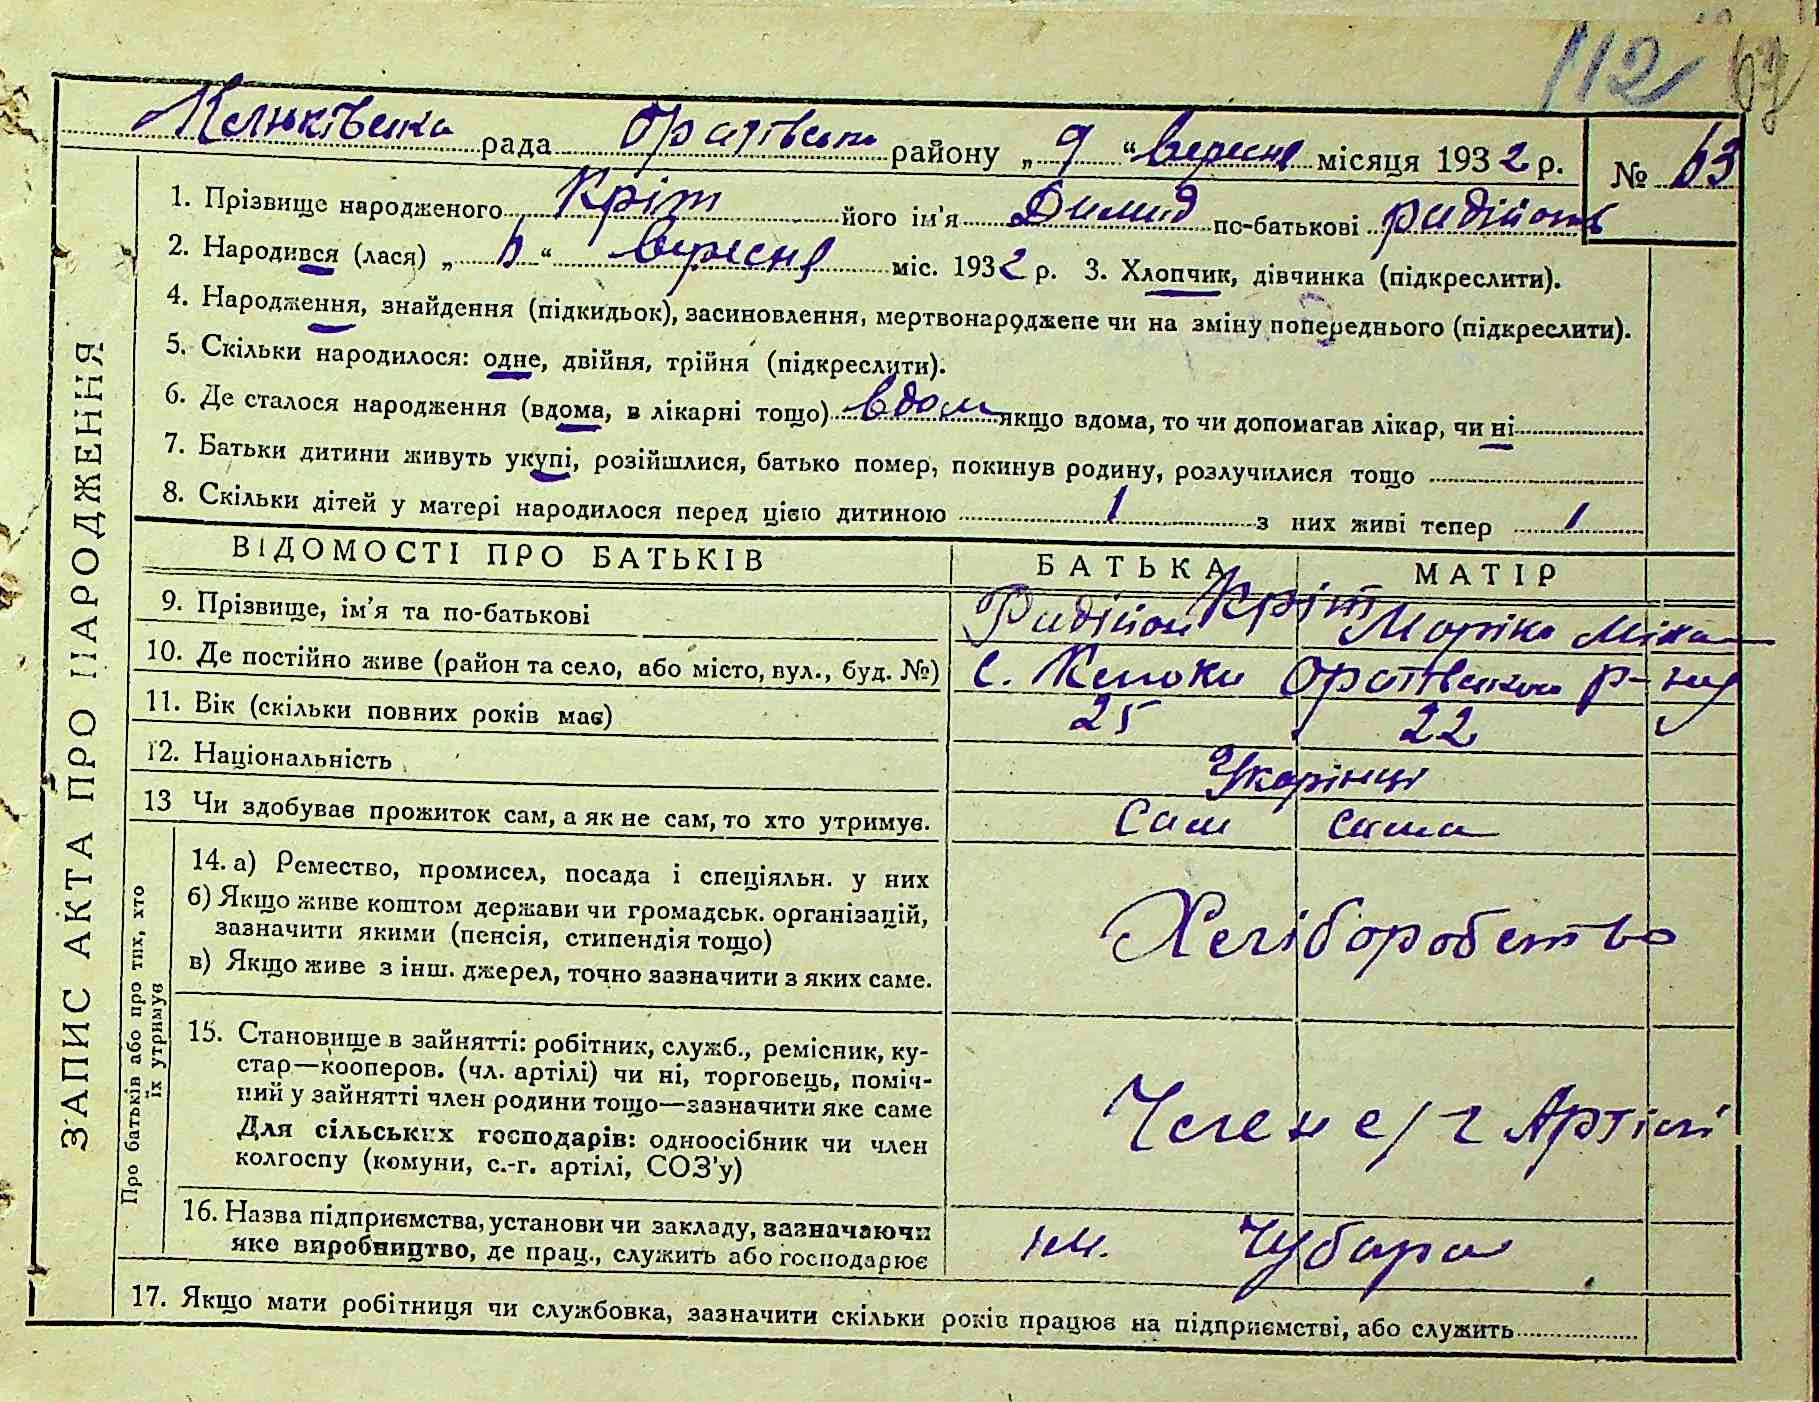 112 62
Клюківська рада Оратівськ району „ 9 “ вересня місяця 1932 р. № 63
1. Прізвище народженого Кріт його ім’я Димид по-батькові
2. Народився (лася) „ 6 “ вересня міс. 1932 р. 3. Хлопчик, дівчинка (підкреслити).
4. Народження, знайдення (підкидьок), засиновлення, мертвонароджене чи на зміну попереднього (підкреслити).
5. Скільки народилося: одне, двійня, трійня (підкреслити).
6. Де сталося народження (вдома, в лікарні тощо) вдом якщо вдома, то чи допомагав лікар, чи ні
7. Батьки дитини живуть укупі, розійшлися, батько помер, покинув родину, розлучилися тощо
8. Скільки дітей у матері народилося перед цією дитиною 1 з них живі тепер 1
ЗАПИС АКТА ПРО НАРОДЖЕННЯ
ВІДОМОСТІ ПРО БАТЬКІВ БАТЬКА МАТІР
9. Прізвище, ім’я та по-батькові Кріт
10. Де постійно живе (район та село, або місто, вул., буд. №) с. Клюки Оратівського р-ну
11. Вік (скільки повних років має) 25 22
12. Національність Українці
13 Чи здобуває прожиток сам, а як не сам, то хто утримує. Сам сама
Про батьків або про тих, хто
їх утримує
14. а) Ремество, промисел, посада і спеціяльн. у них
б) Якщо живе коштом держави чи громадськ. організацій,
зазначити якими (пенсія, стипендія тощо)
Хліборобство
в) Якщо живе з інш. джерел, точно зазначити з яких саме.
15. Становище в зайнятті: робітник, служб., ремісник, ку-
стар—кооперов. (чл. артілі) чи ні, торговець, поміч-
ний у зайнятті член родини тощо—зазначити яке саме
Член с/г Артілі
Для сільських господарів: одноосібник чи член
колгоспу (комуни, с.-г. артілі, СОЗ’у)
16. Назва підприємства, установи чи закладу, зазначаючи
яке виробництво, де прац., служить або господарює
ім. Чубаря
17. Якщо мати робітниця чи службовка, зазначити скільки років працює на підприємстві, або служить